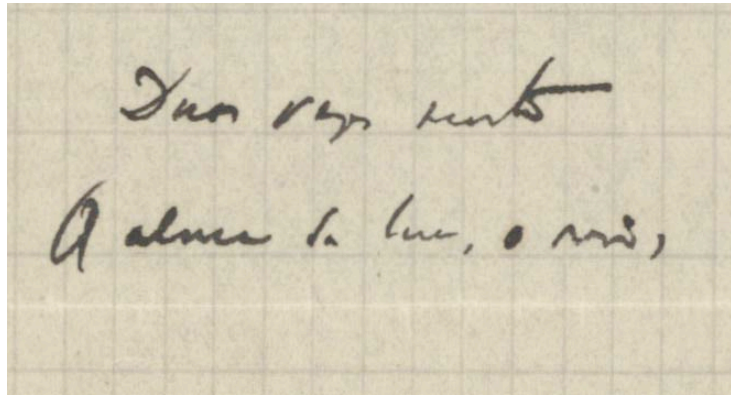 Duas vezes sinto
A alma da lua, o